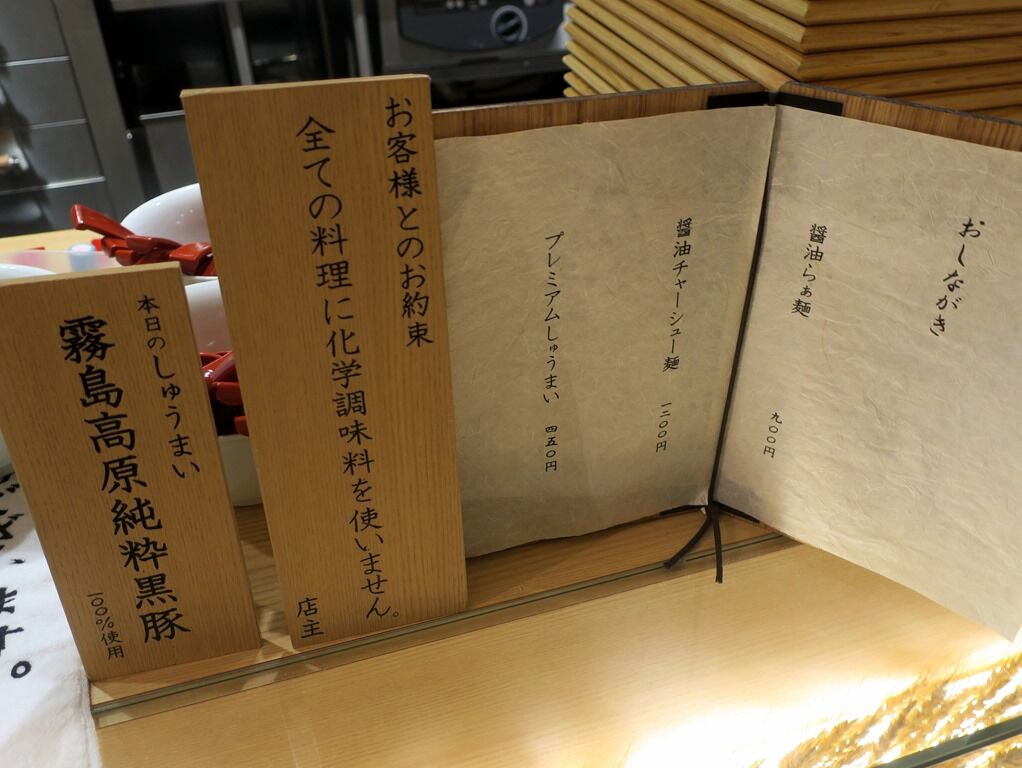 おしながき
醤油らぁ麺 九〇〇円
醤油チャーシュー麺 一二〇〇円
プレミアムしゅうまい 四五〇円
お客様とのお約束
全ての料理に化学調味料を使いません。
店主
本日のしゅうまい
霧島高原純粋黒豚
一〇〇%使用